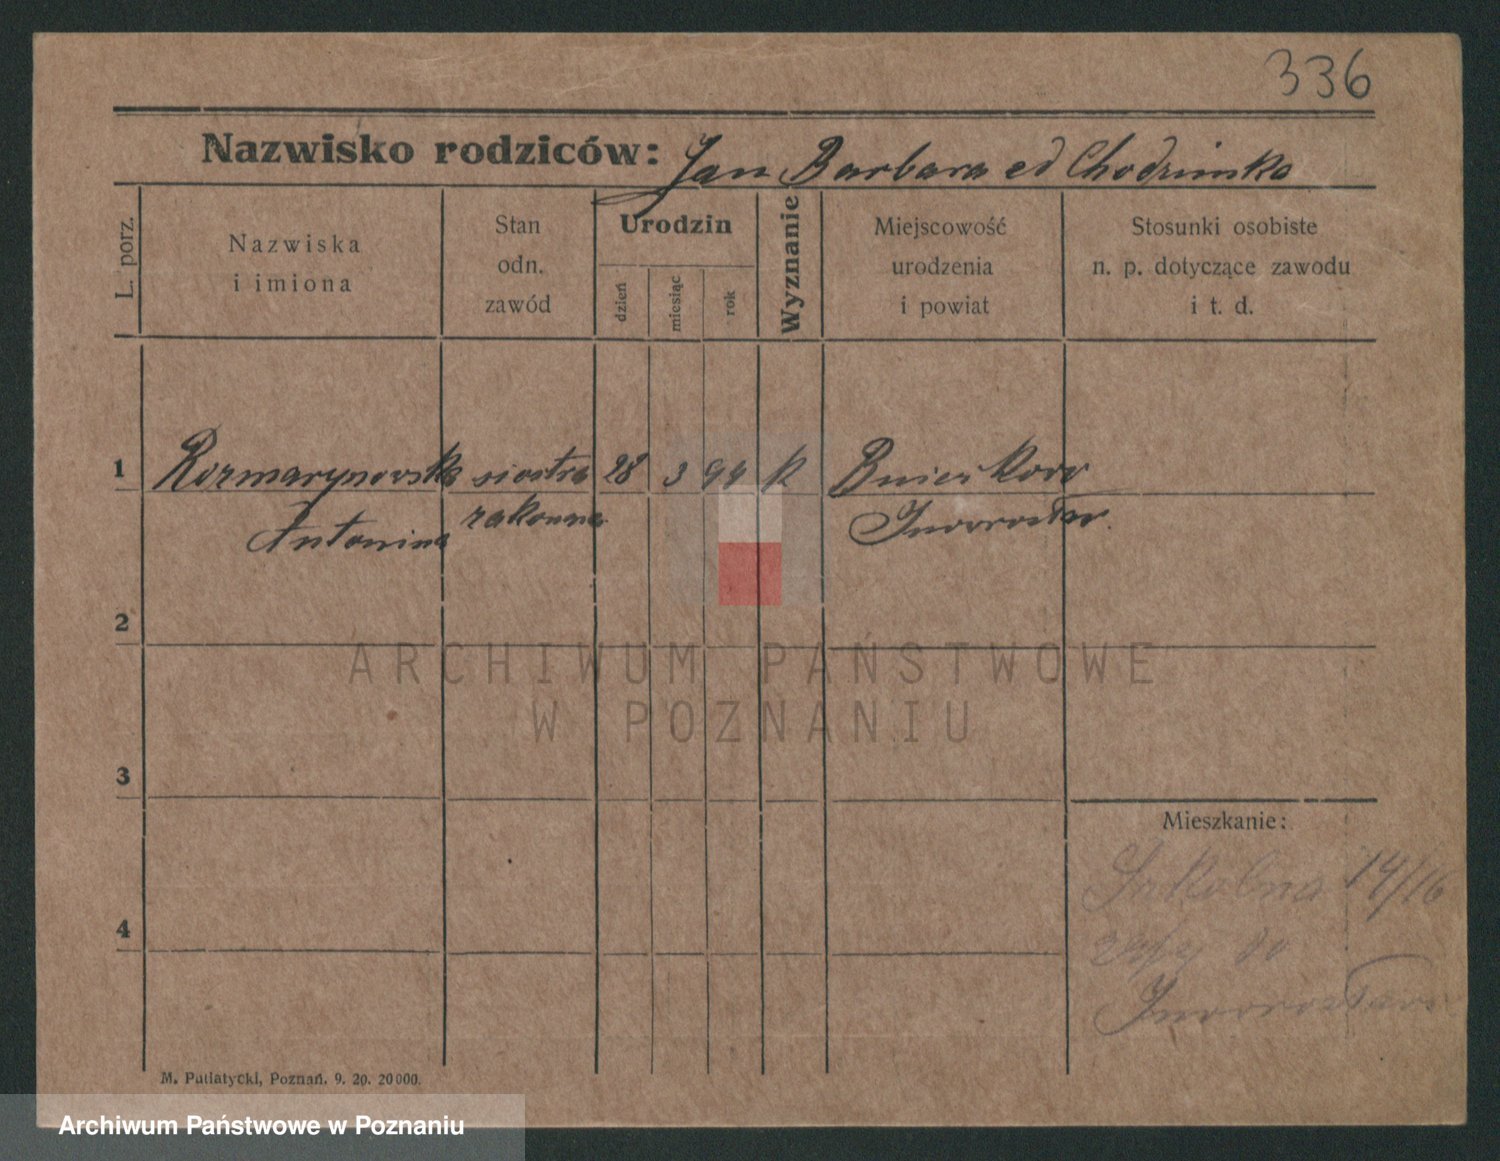 336
Nazwisko rodziców: Jan Barbara cd Chodzinska
L. porz.
Nazwiska
i imiona
Stan
odn.
zawód
Urodzin
dzień
miesiąc
rok
Wyznanie
Miejscowość
urodzenia
i powiat
Stosunki osobiste
n. p. dotyczące zawodu
i t. d.
1 Rozmarynowska siostra 28 3 94 k
Antonina zakonna Inowrocław
2
ARCHIWUM PAŃSTWOWE
W POZNANIU
3
Mieszkanie:
Szkolna 14/16
4
do
Inowrocław
M. Putiatycki, Poznań. 9. 20. 20000.
Archiwum Państwowe w Poznaniu